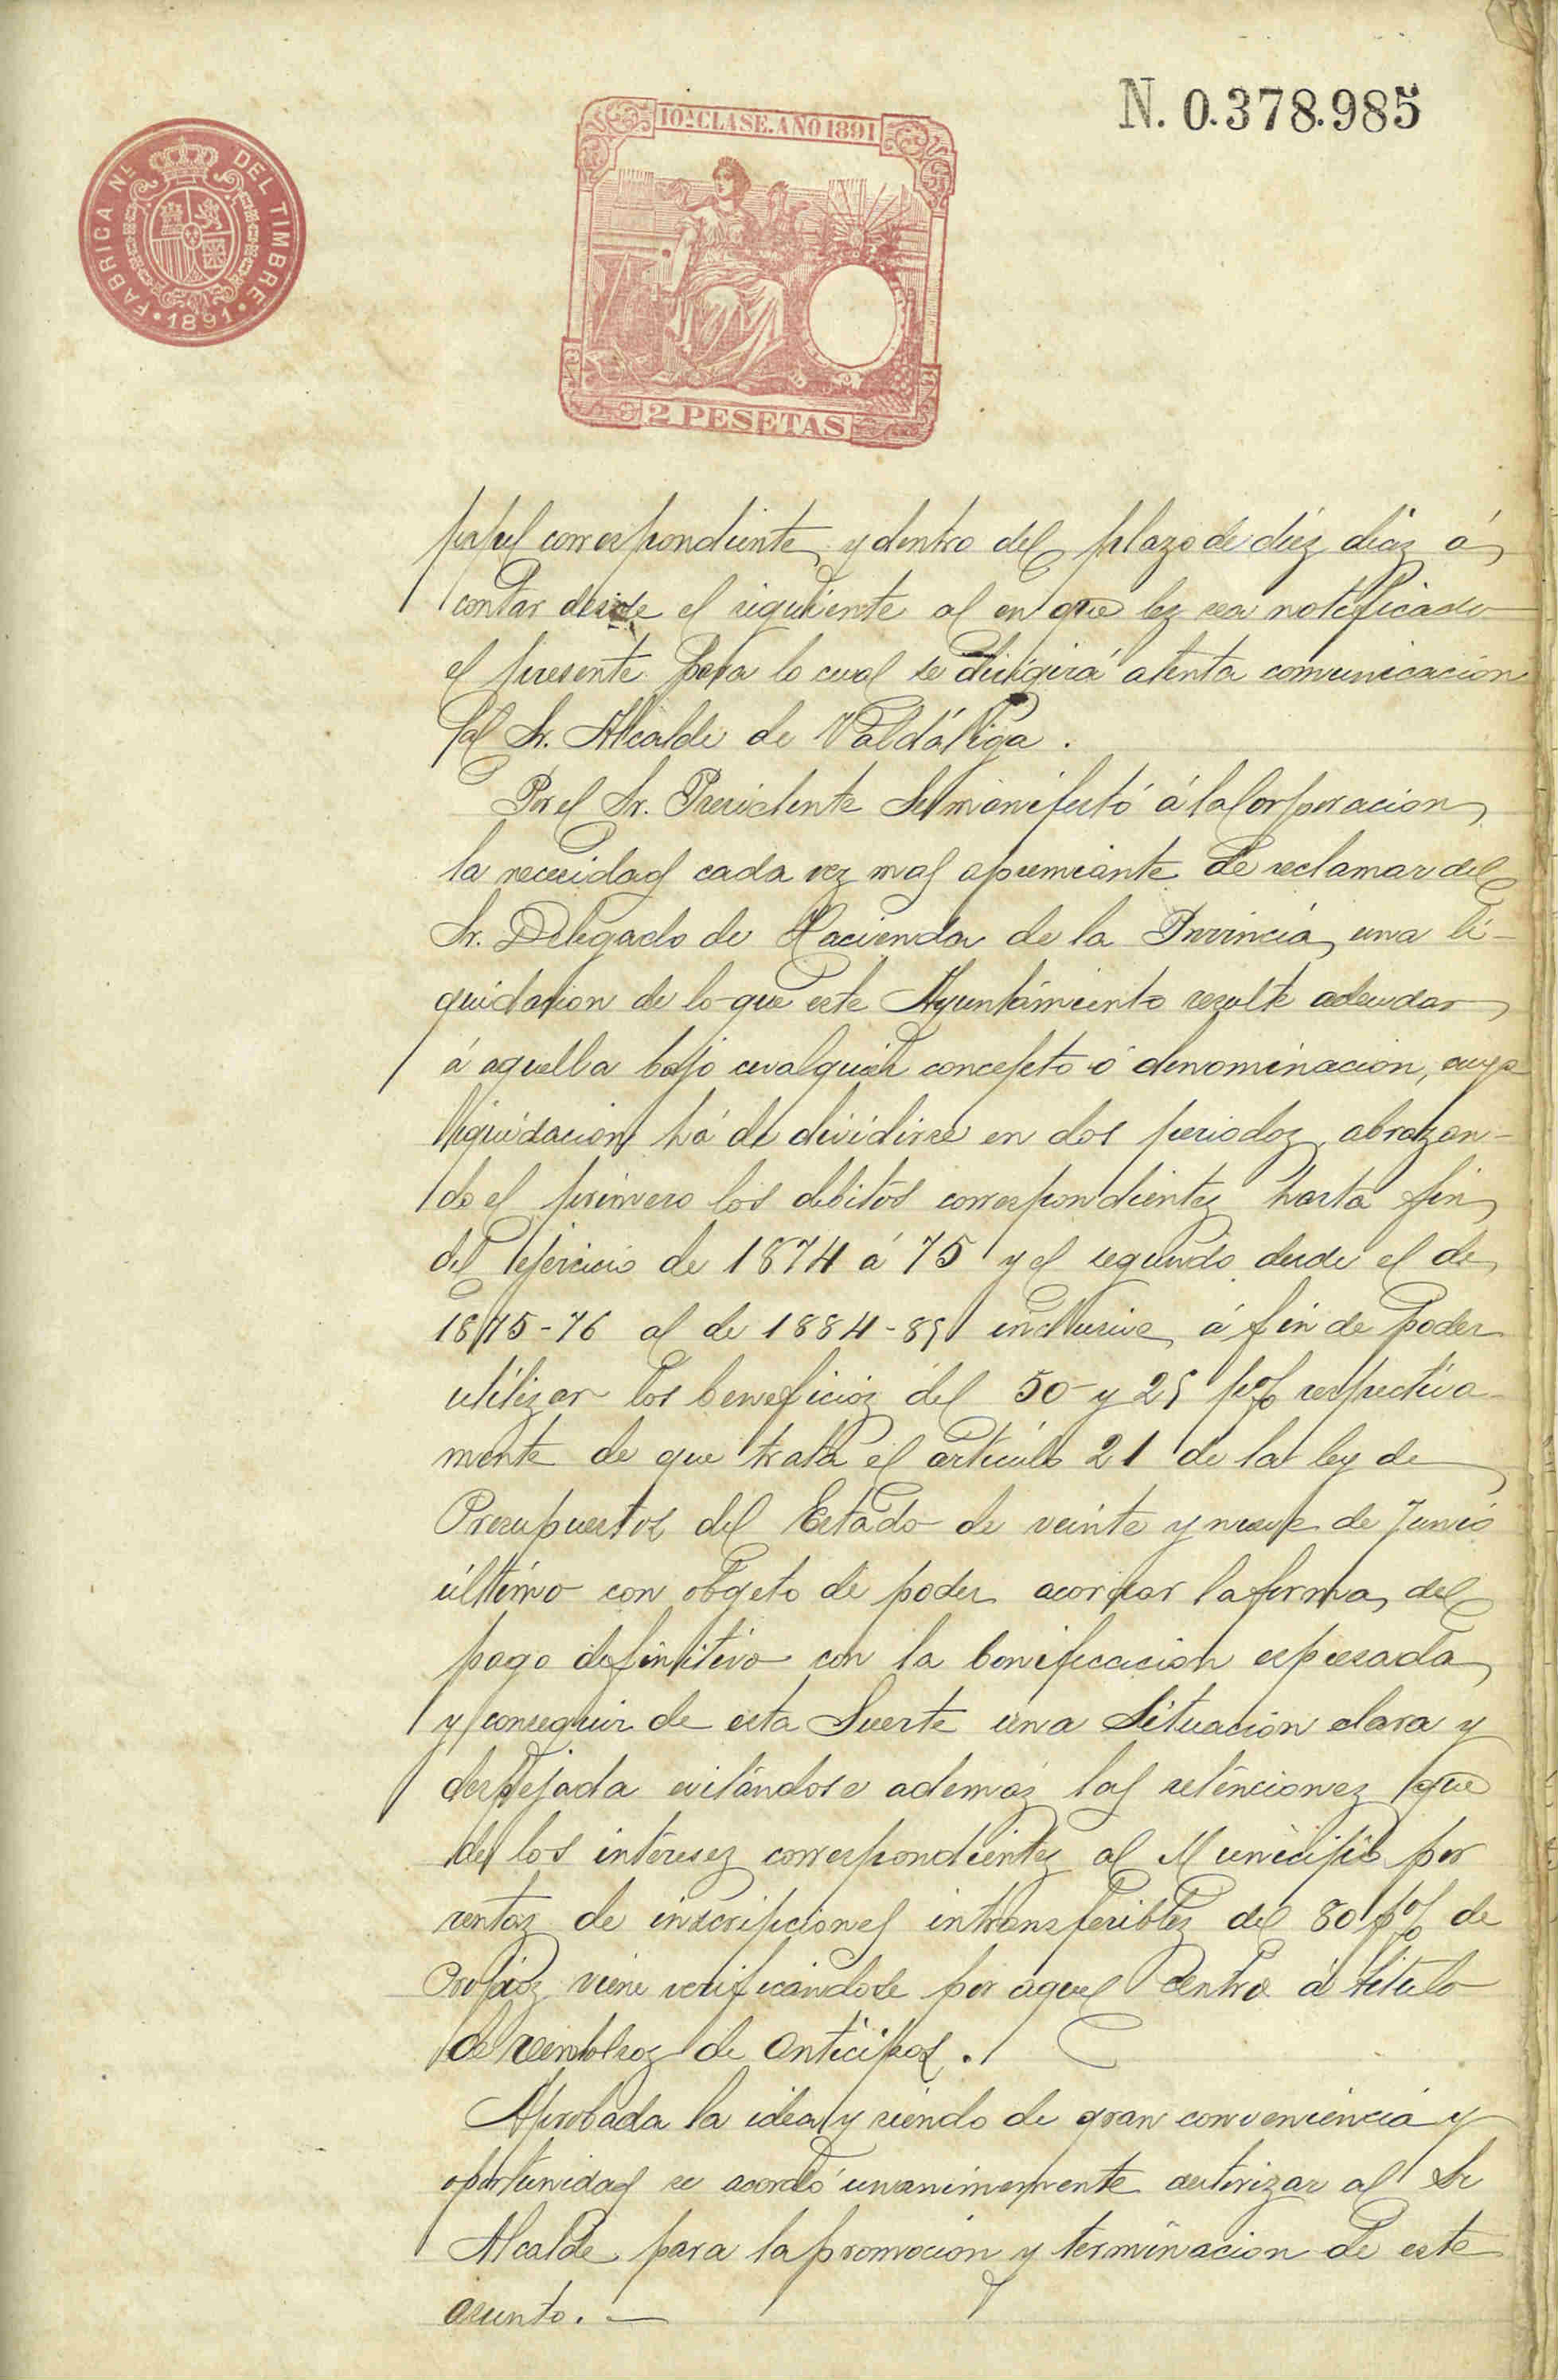 N. 0.378.985
FABRICA Nˡ DEL TIMBRE
1891
10ª CLASE. AÑO 1891
2 PESETAS
papel correspondiente y dentro del plazo de diez dias á
contar desde el siguiente al en que les sea notificado
el presente para lo cual se dirigirá atenta comunicacion
al Sr. Alcalde de Valdáliga.
Por el Sr. Presidente se manifestó á la Corporacion
la necesidad cada vez mas apremiante de reclamar del
Sr. Delegado de Hacienda de la Provincia, una li-
quidacion de lo que este Ayuntamiento resulte adeudar
á aquella bajo cualquier concepto ó denominacion, cuya
liquidacion há de dividirse en dos periodos, abrazan-
do el primero los débitos correspondientes hasta fin
del ejercicio de 1874 á 75 y el segundo desde el de
1875-76 al de 1884-85 inclusive, á fin de poder
utilizar los beneficios del 50 y 25 p% respectiva-
mente de que trata el artículo 21 de la ley de
Presupuestos del Estado de veinte y nueve de Junio
último con obgeto de poder acordar la forma del
pago definitivo con la bonificacion espresada
y conseguir de esta suerte una situacion clara y
despejada evitándose además las retenciones que
de los intereses correspondientes al Municipio por
rentas de inscripciones intransferibles del 80 p% de
Propios viene verificándose por aquel Centro á título
de reembolsos de anticipos.
Aprobada la idea y siendo de gran conveniencia y
oportunidad se acordó unanimemente autorizar al Sr
Alcalde para la promocion y terminacion de este
asunto.